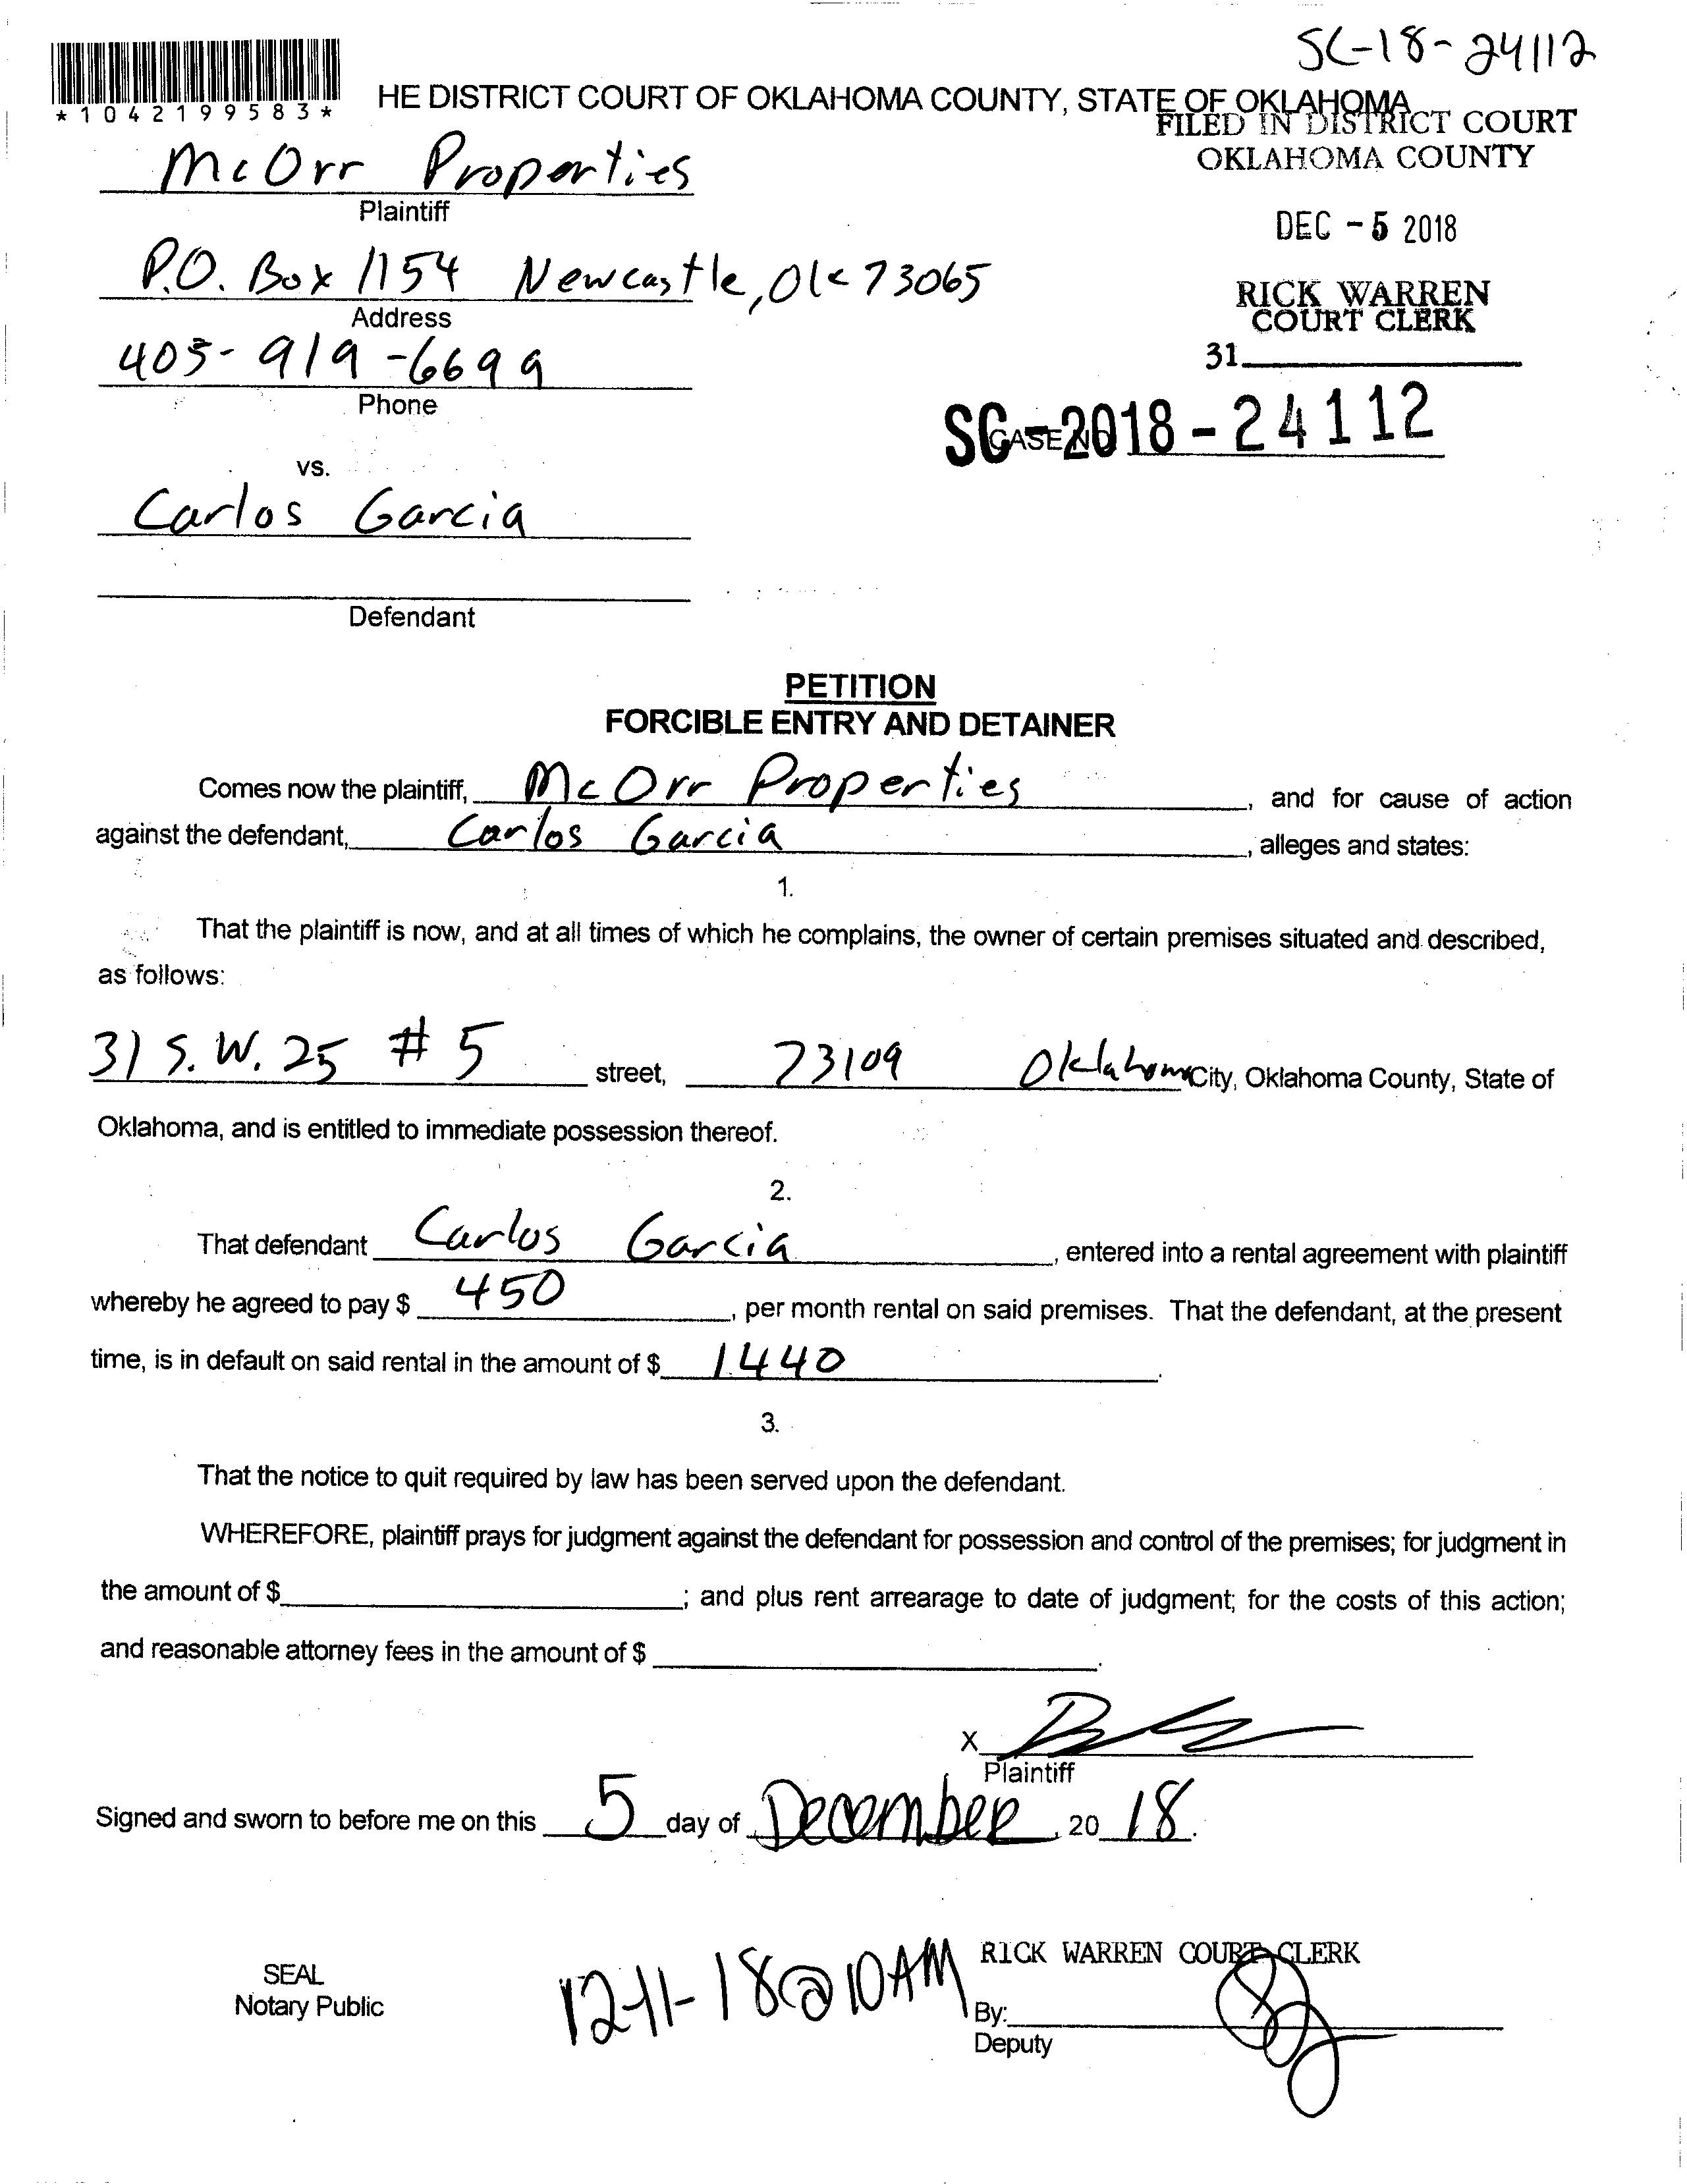 SC-18-24112
*1042199583*
HE DISTRICT COURT OF OKLAHOMA COUNTY, STATE OF OKLAHOMA
FILED IN DISTRICT COURT
OKLAHOMA COUNTY
McOrr Properties
Plaintiff
DEC -5 2018
P.O. Box 1154 Newcastle, Ok 73065
Address
RICK WARREN
COURT CLERK
405-919-6699
Phone
31
SC-2018-24112
CASE NO
vs.
Carlos Garcia
Defendant
PETITION
FORCIBLE ENTRY AND DETAINER
Comes now the plaintiff, McOrr Properties, and for cause of action
against the defendant, Carlos Garcia, alleges and states:
1.
That the plaintiff is now, and at all times of which he complains, the owner of certain premises situated and described,
as follows:
31 S.W. 25 #5 street, 73109 Oklahoma City, Oklahoma County, State of
Oklahoma, and is entitled to immediate possession thereof.
2.
That defendant Carlos Garcia, entered into a rental agreement with plaintiff
whereby he agreed to pay $ 450, per month rental on said premises. That the defendant, at the present
time, is in default on said rental in the amount of $ 1440.
3.
That the notice to quit required by law has been served upon the defendant.
WHEREFORE, plaintiff prays for judgment against the defendant for possession and control of the premises; for judgment in
the amount of $ ; and plus rent arrearage to date of judgment; for the costs of this action;
and reasonable attorney fees in the amount of $ .
X
Plaintiff
Signed and sworn to before me on this 5 day of December, 20 18.
RICK WARREN COURT CLERK
SEAL
Notary Public
12-11-18@10AM
By:
Deputy